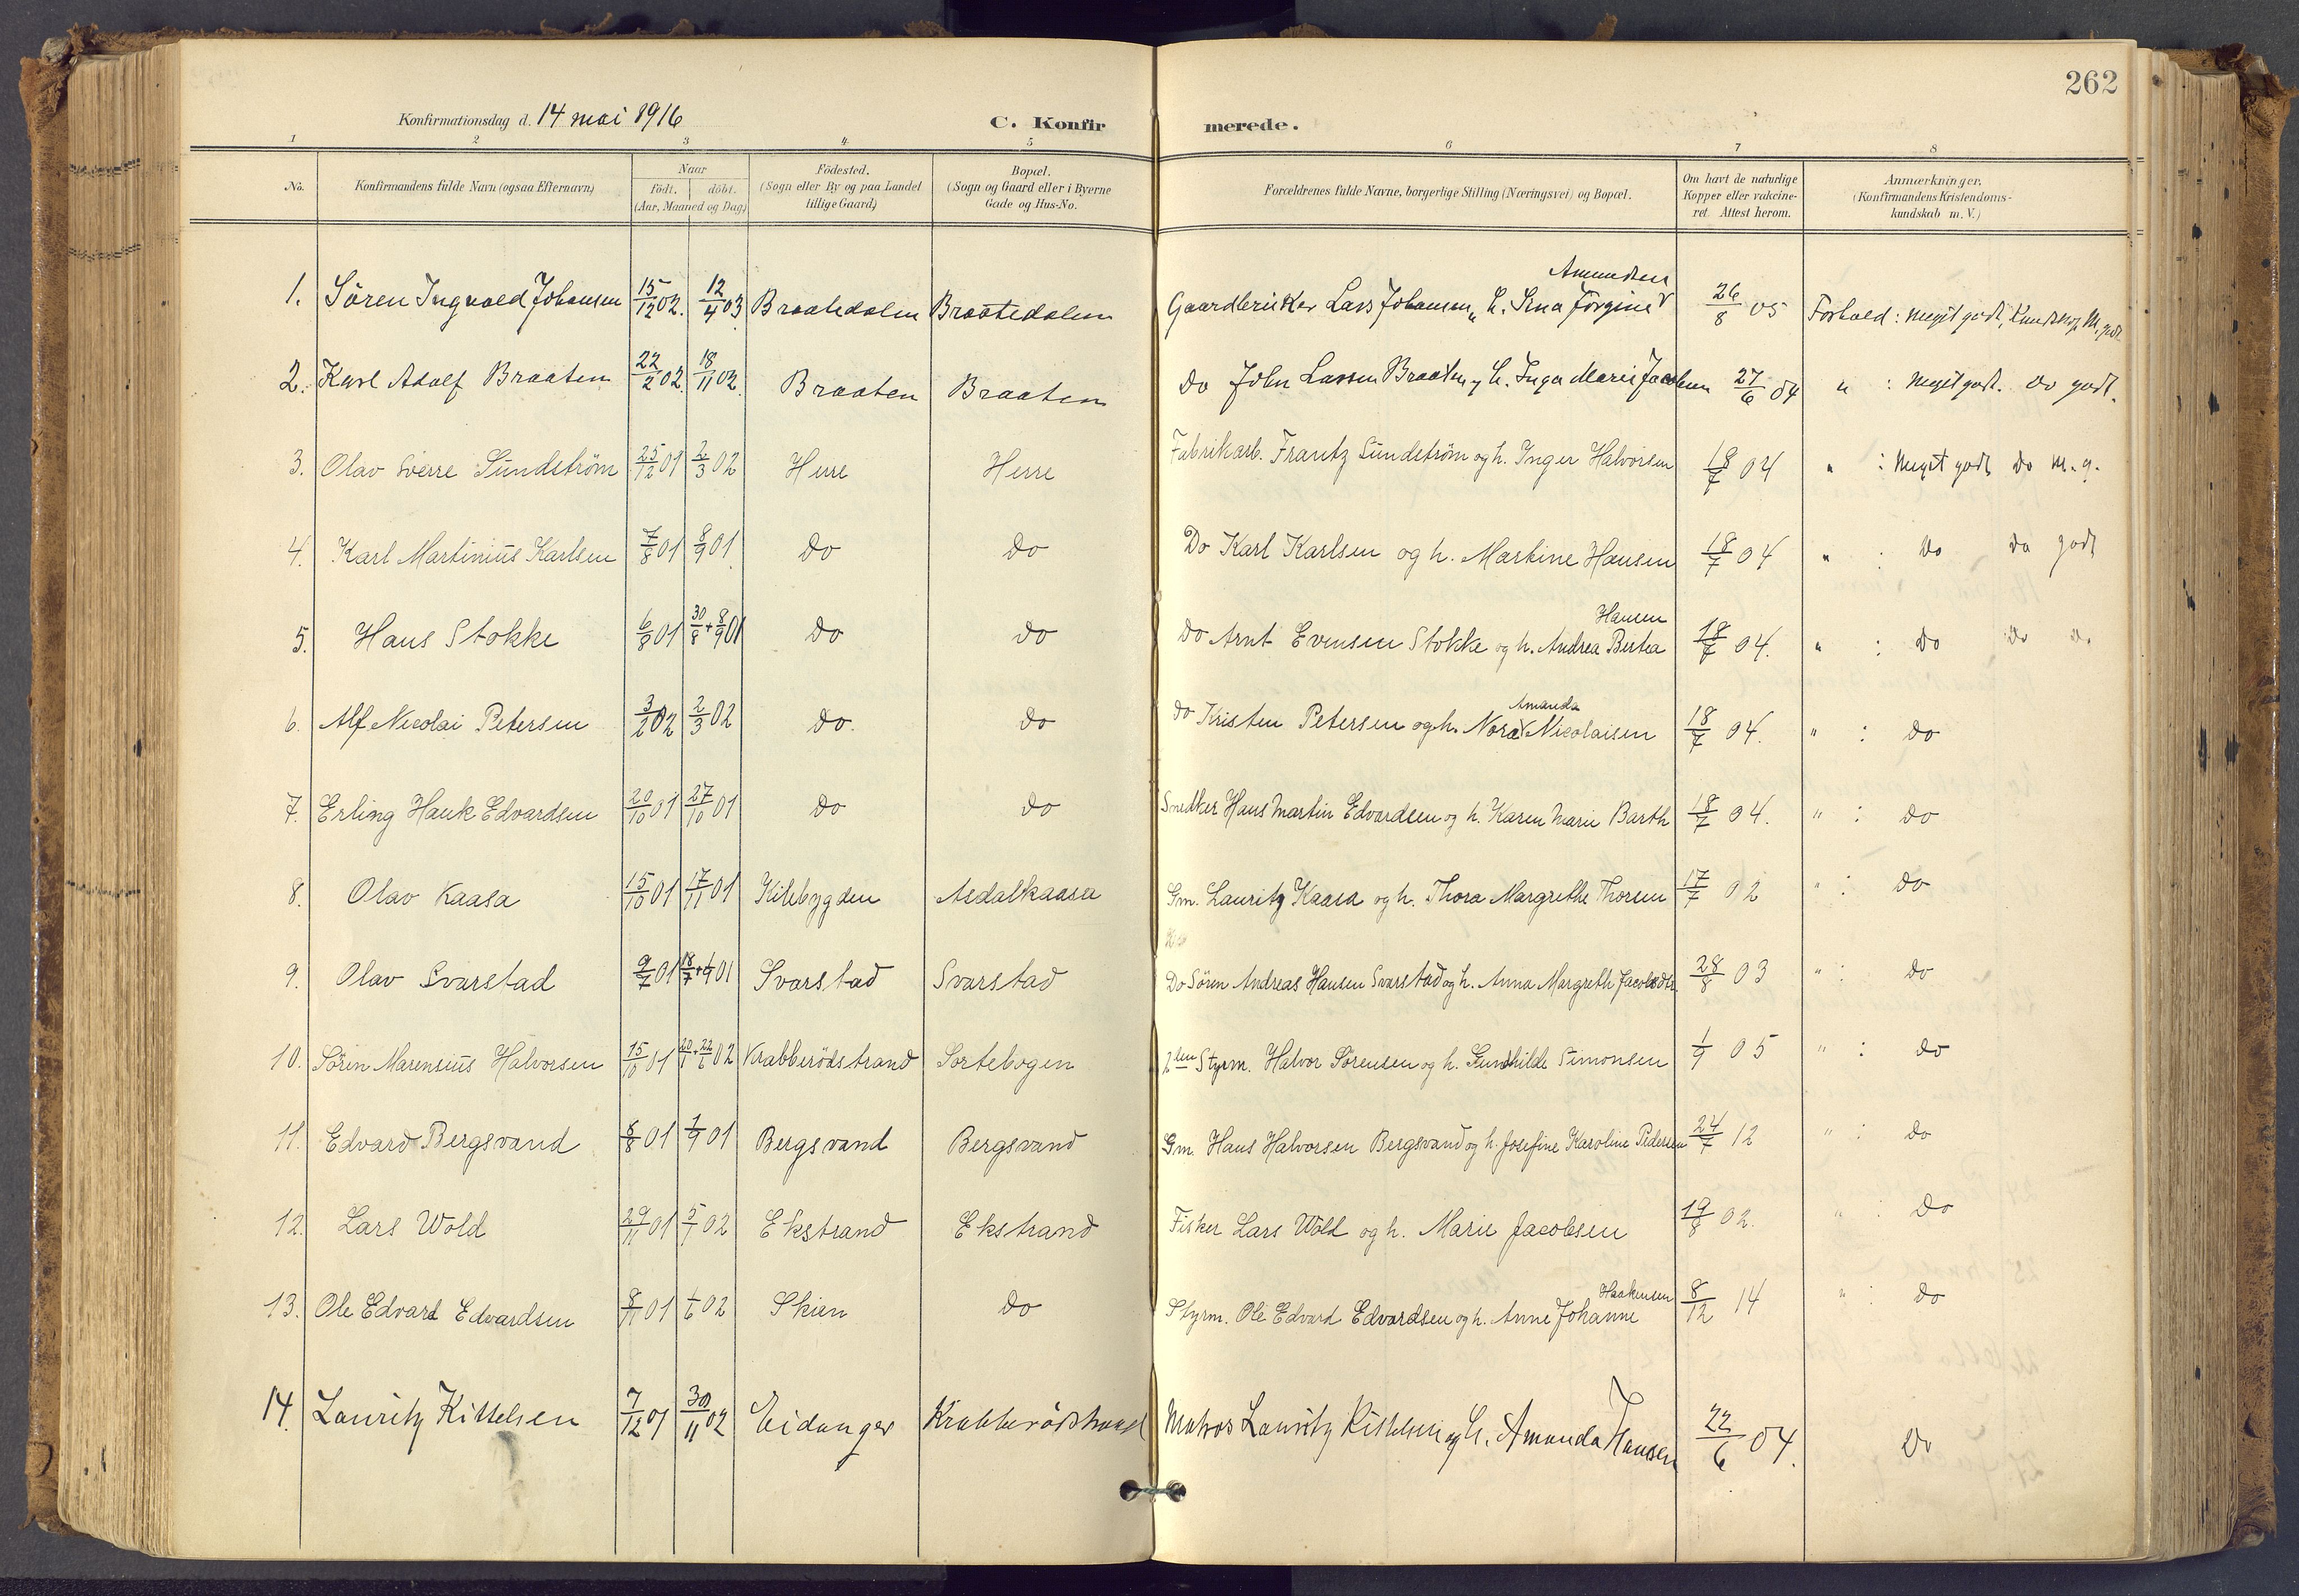 262
Konfirmationsdag d. 14 mai 1916
C. Konfirmerede.
1 2 3 4 5 6 7 8
No. Konfirmandens fulde Navn (ogsaa Efternavn) Naar født. døbt. (Aar, Maaned og Dag) Fødested. (Sogn eller By og paa Landet tillige Gaard) Bopæl. (Sogn og Gaard eller i Byerne Gade og Hus-No. Forældrenes fulde Navne, borgerlige Stilling (Næringsvei) og Bopæl. Om havt de naturlige Kopper eller vakcineret. Attest herom. Anmærkninger. (Konfirmandens Kristendomskundskab m. V.)
1. Sören Ingvald Johansen 15/12 02. 12/4 03 Braatedalen Braatedalen Gaardbruker Lars Johansen, h. Sina Jörgine Amundsen 26/8 05 Forhold: meget godt, Kundskap M. godt
2. Karl Adolf Braaten 22/2 02. 18/11 02. Braaten Braaten Do John Larsen Braaten og h. Inga Marie Jacobsen 27/6 04 " : Meget godt. do godt.
3. Olav Sverre Sundström 25/12 01 2/3 02 Herre Herre Fabrikarb. Frantz Sundström og h. Inger Halvorsen 18/7 04 " : Meget godt do M. g.
4. Karl Martinius Karlsen 7/8 01 8/9 01 Do Do Do Karl Karlsen og h. Martine Hansen 18/7 04 " : Do do godt
5. Hans Stokke 6/8 01 30/8 + 8/9 01 Do Do Do Arnt Evensen Stokke og h. Andrea Bertea Hansen 18/7 04. " : Do do do
6. Alf Nicolai Petersen 3/2 02 2/3 02 Do. Do Do Kristen Petersen og h. Nora Amanda Nicolaisen 18/7 04. " : Do
7. Erling Hauk Edvardsen 20/10 01 27/10 01 Do Do Snedker Hans Martin Edvardsen og h. Karen Marie Barth 18/7 04. " : Do
8. Olav Kaasa 15/10 01 17/11 01 Kilebygden Asdalkaasa Gm. Lauritz Kaasa og h. Thora Margrethe Thorsen 17/7 02 " : Do
9. Olav Svarstad 9/7 01 18/7 + 1/9 01 Svarstad Svarstad Do Sören Andreas Hansen Svarstad og h. Anna Margreth Jacobsdtr. 28/8 03 " : Do
10. Sören Marensius Halvorsen 15/10 01 20/1 + 22/6 02 Krabberödstrand Sortebogen Styrm. Halvor Sörensen og h. Gunhilde Simonsen 1/9 05 " : Do
11. Edvard Bergsvand 8/8 01 1/9 01 Bergsvand Bergsvand Gm. Hans Halvorsen Bergsvand og h. Josefine Karoline Pedersen 24/7 12 " : Do
12. Lars Wold 29/11 01 5/1 02 Ekstrand Ekstrand Fisker Lars Wold og h. Marie Jacobsen 19/8 02. " : Do
13. Ole Edvard Edvardsen 8/11 01 1/6 02 Skien Do Styrm. Ole Edvard Edvardsen og h. Anne Johanne Haakensen 8/12 14 " : Do
14. Lauritz Kittelsen 7/12 01 30/11 02 Eidanger Krabberödstrand Matros Lauritz Kittelsen og h. Amanda Hansen 22/6 04. Do